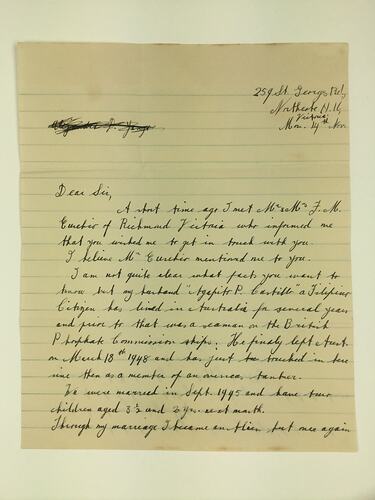 259 St. Georges Rd,
Northcote N.16,
Victoria
Mon. 14th Nov.
Dear Sir,
A short time ago I met Mr & Mrs F. M.
of Richmond Victoria who informed me
that you wished me to get in touch with you.
I believe Mr mentioned me to you.
I am not quite clear what facts you want to
know but my husband "Agapito P. Castillo" a Filipino
Citizen has lived in Australia for several years
and prior to that was a seaman on the British
Phosphate Commission ships. He finally left Aust.
on March 18th 1948 and has just been touched in here
since then as a member of an overseas tanker.
We were married in Sept. 1945 and have two
children aged 3½ and 2 yrs. next month.
Through my marriage I became an Alien but once again